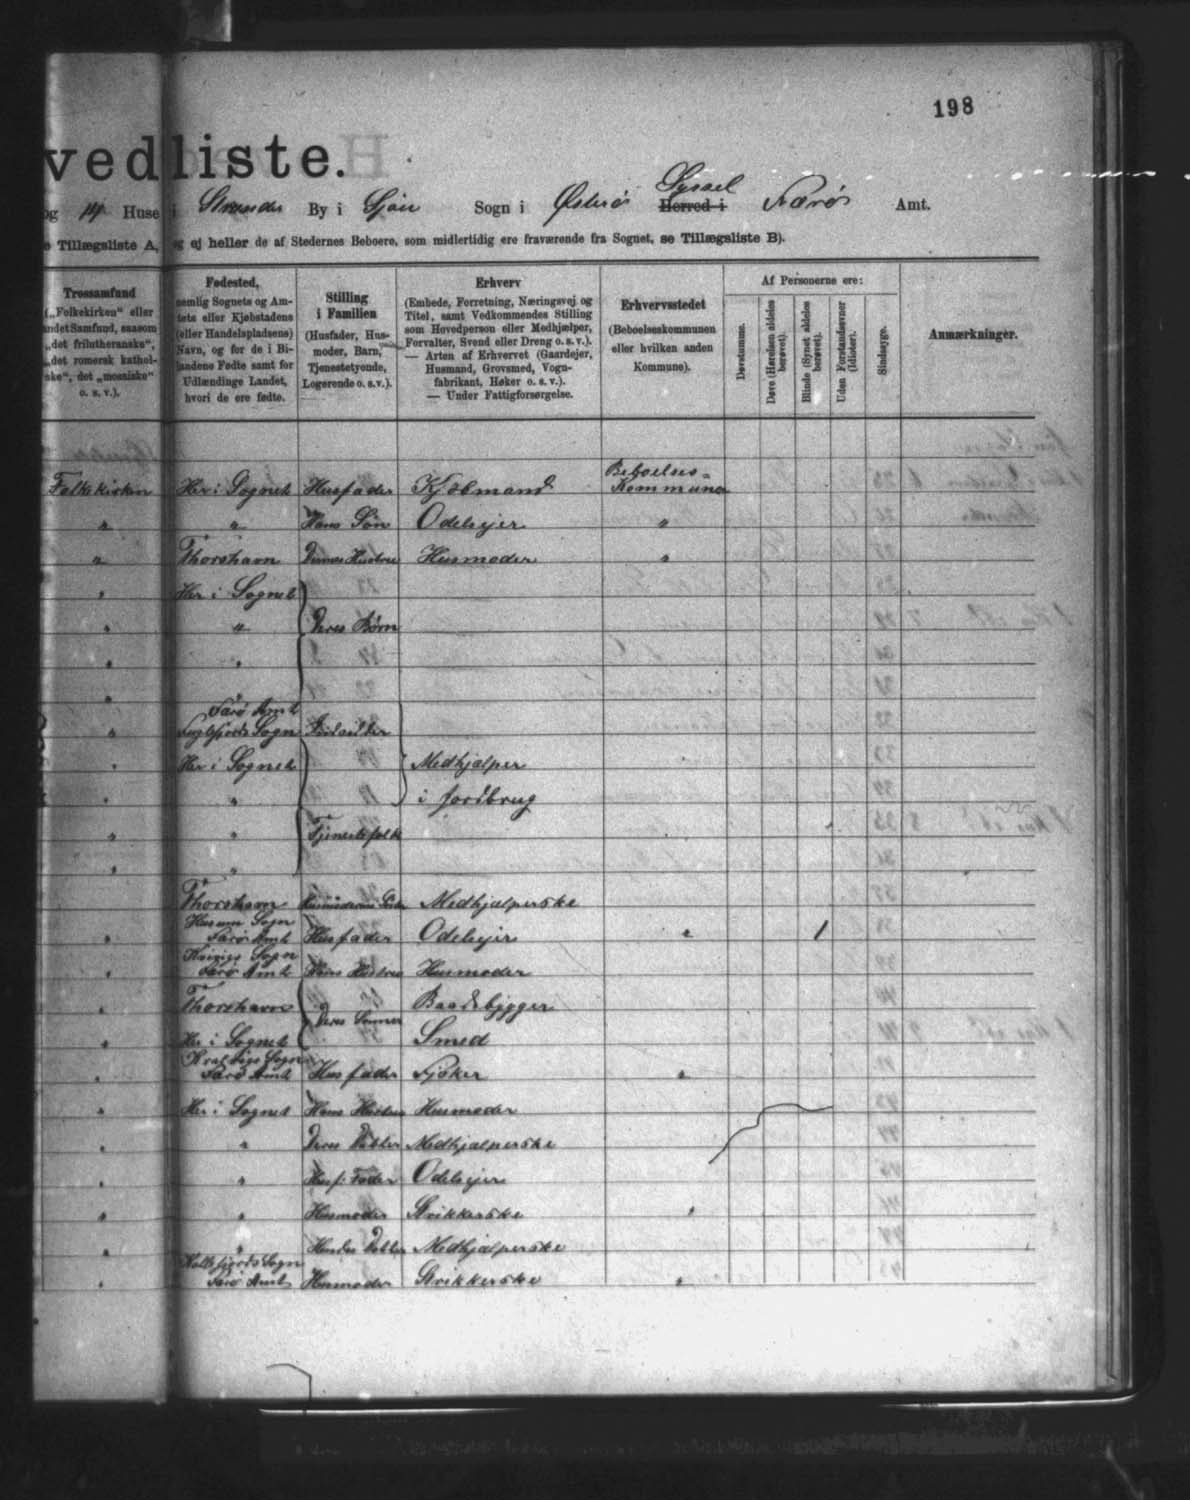 198
vedliste.
og 14 Huse i Strænder By i Sjov Sogn i Østerø Syssel Herred i Færø Amt.
e Tillægsliste A, og ej heller de af Stedernes Beboere, som midlertidig ere fraværende fra Sognet, se Tillægsliste B).
Trossamfund
(„Folkekirken“ eller
andet Samfund, saasom
„det frilutheranske“,
„det romersk kathol-
ske“, det „mosaiske“
o. s. v.).
Fødested,
nemlig Sognets og Am-
tets eller Kjøbstadens
(eller Handelspladsens)
Navn, og for de i Bi-
landene Fødte samt for
Udlændinge Landet,
hvori de ere fødte.
Stilling
i Familien
(Husfader, Hus-
moder, Barn,
Tjenestetyende,
Logerende o. s. v.).
Erhverv
(Embede, Forretning, Næringsvej og
Titel, samt Vedkommendes Stilling
som Hovedperson eller Medhjælper,
Forvalter, Svend eller Dreng o. s. v.).
— Arten af Erhvervet (Gaardejer,
Husmand, Grovsmed, Vogn-
fabrikant, Høker o. s. v.).
— Under Fattigforsørgelse.
Erhvervsstedet
(Beboelseskommunen
eller hvilken anden
Kommune).
Af Personerne ere:
Døvstumme.
Døve (Hørelsen aldeles berøvet).
Blinde (Synet aldeles berøvet).
Uden Forstandsevner (Idioter).
Sindssyge.
Anmærkninger.
Folkekirken Her i Sognet Husfader Kjøbmand Beboelses-Kommunen
" " Hans Søn Odelsejer "
" Thorshavn Dennes Hustru Husmoder "
" Her i Sognet
" " Deres Børn
" "
"
" Færø Amt
Fuglefjords Sogn
" Her i Sognet Medhjælper
" " i Jordbrug
" " Tjenestefolk
" "
Thorshavn Medhjælperske
" Sogn
Færø Amt Husfader Odelsejer " 1
" Sogn
Færø Amt Hans Hustru Husmoder
" Thorshavn Deres Sønner Baadebygger
" Her i Sognet Smed
" Sogn
Færø Amt Husfader Fisker "
" Her i Sognet Hans Hustru Husmoder
" " Deres Datter Medhjælperske
" " Husf: Fader Odelsejer
" " Husmoder Strikkerske "
" " Hendes Datter Medhjælperske
" Sogn
Færø Amt Husmoder Strikkerske "